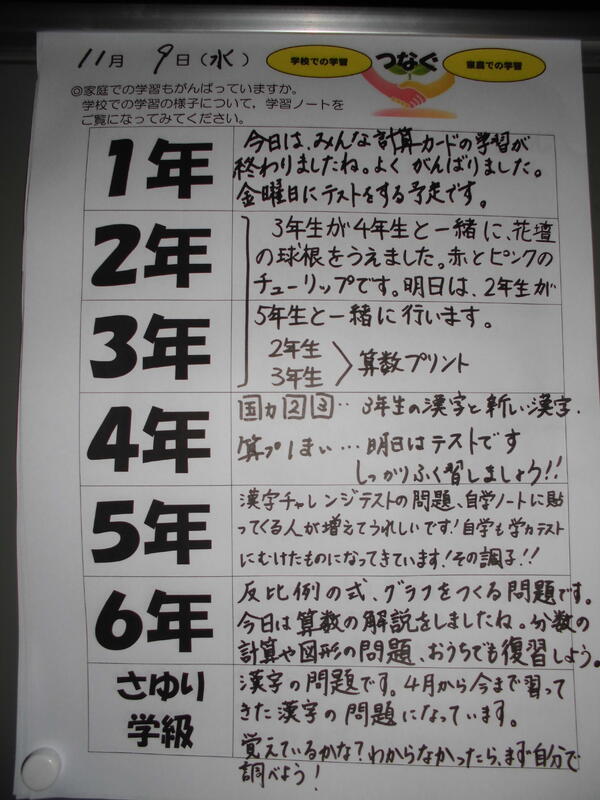 11月 9日(水)
学校での学習 つなぐ 家庭での学習
◎家庭での学習もがんばっていますか。
学校での学習の様子について,学習ノートを
ご覧になってみてください。
1年
今日は、みんな計算カードの学習が
終わりましたね。よく がんばりました。
金曜日にテストをする予定です。
2年
3年
3年生が4年生と一緒に、花壇
の球根をうえました。赤とピンクの
チューリップです。明日は、2年生が
5年生と一緒に行います。
2年生
3年生
算数プリント
4年
国力23‥3年生の漢字と新しい漢字.
算プ1まい…明日はテストです
しっかりふく習しましょう!!
5年
漢字チャレンジテストの問題、自学ノートに貼
ってくる人が増えてうれしいです!自学も学力テスト
にむけたものになってきています!その調子!!
6年
反比例の式、グラフをつくる問題です。
今日は算数の解説をしましたね。分数の
計算や図形の問題、おうちでも復習しよう。
さゆり
学級
漢字の問題です。4月から今まで習って
きた漢字の問題になっています。
覚えているかな?わからなかったら、まず自分で
調べよう!